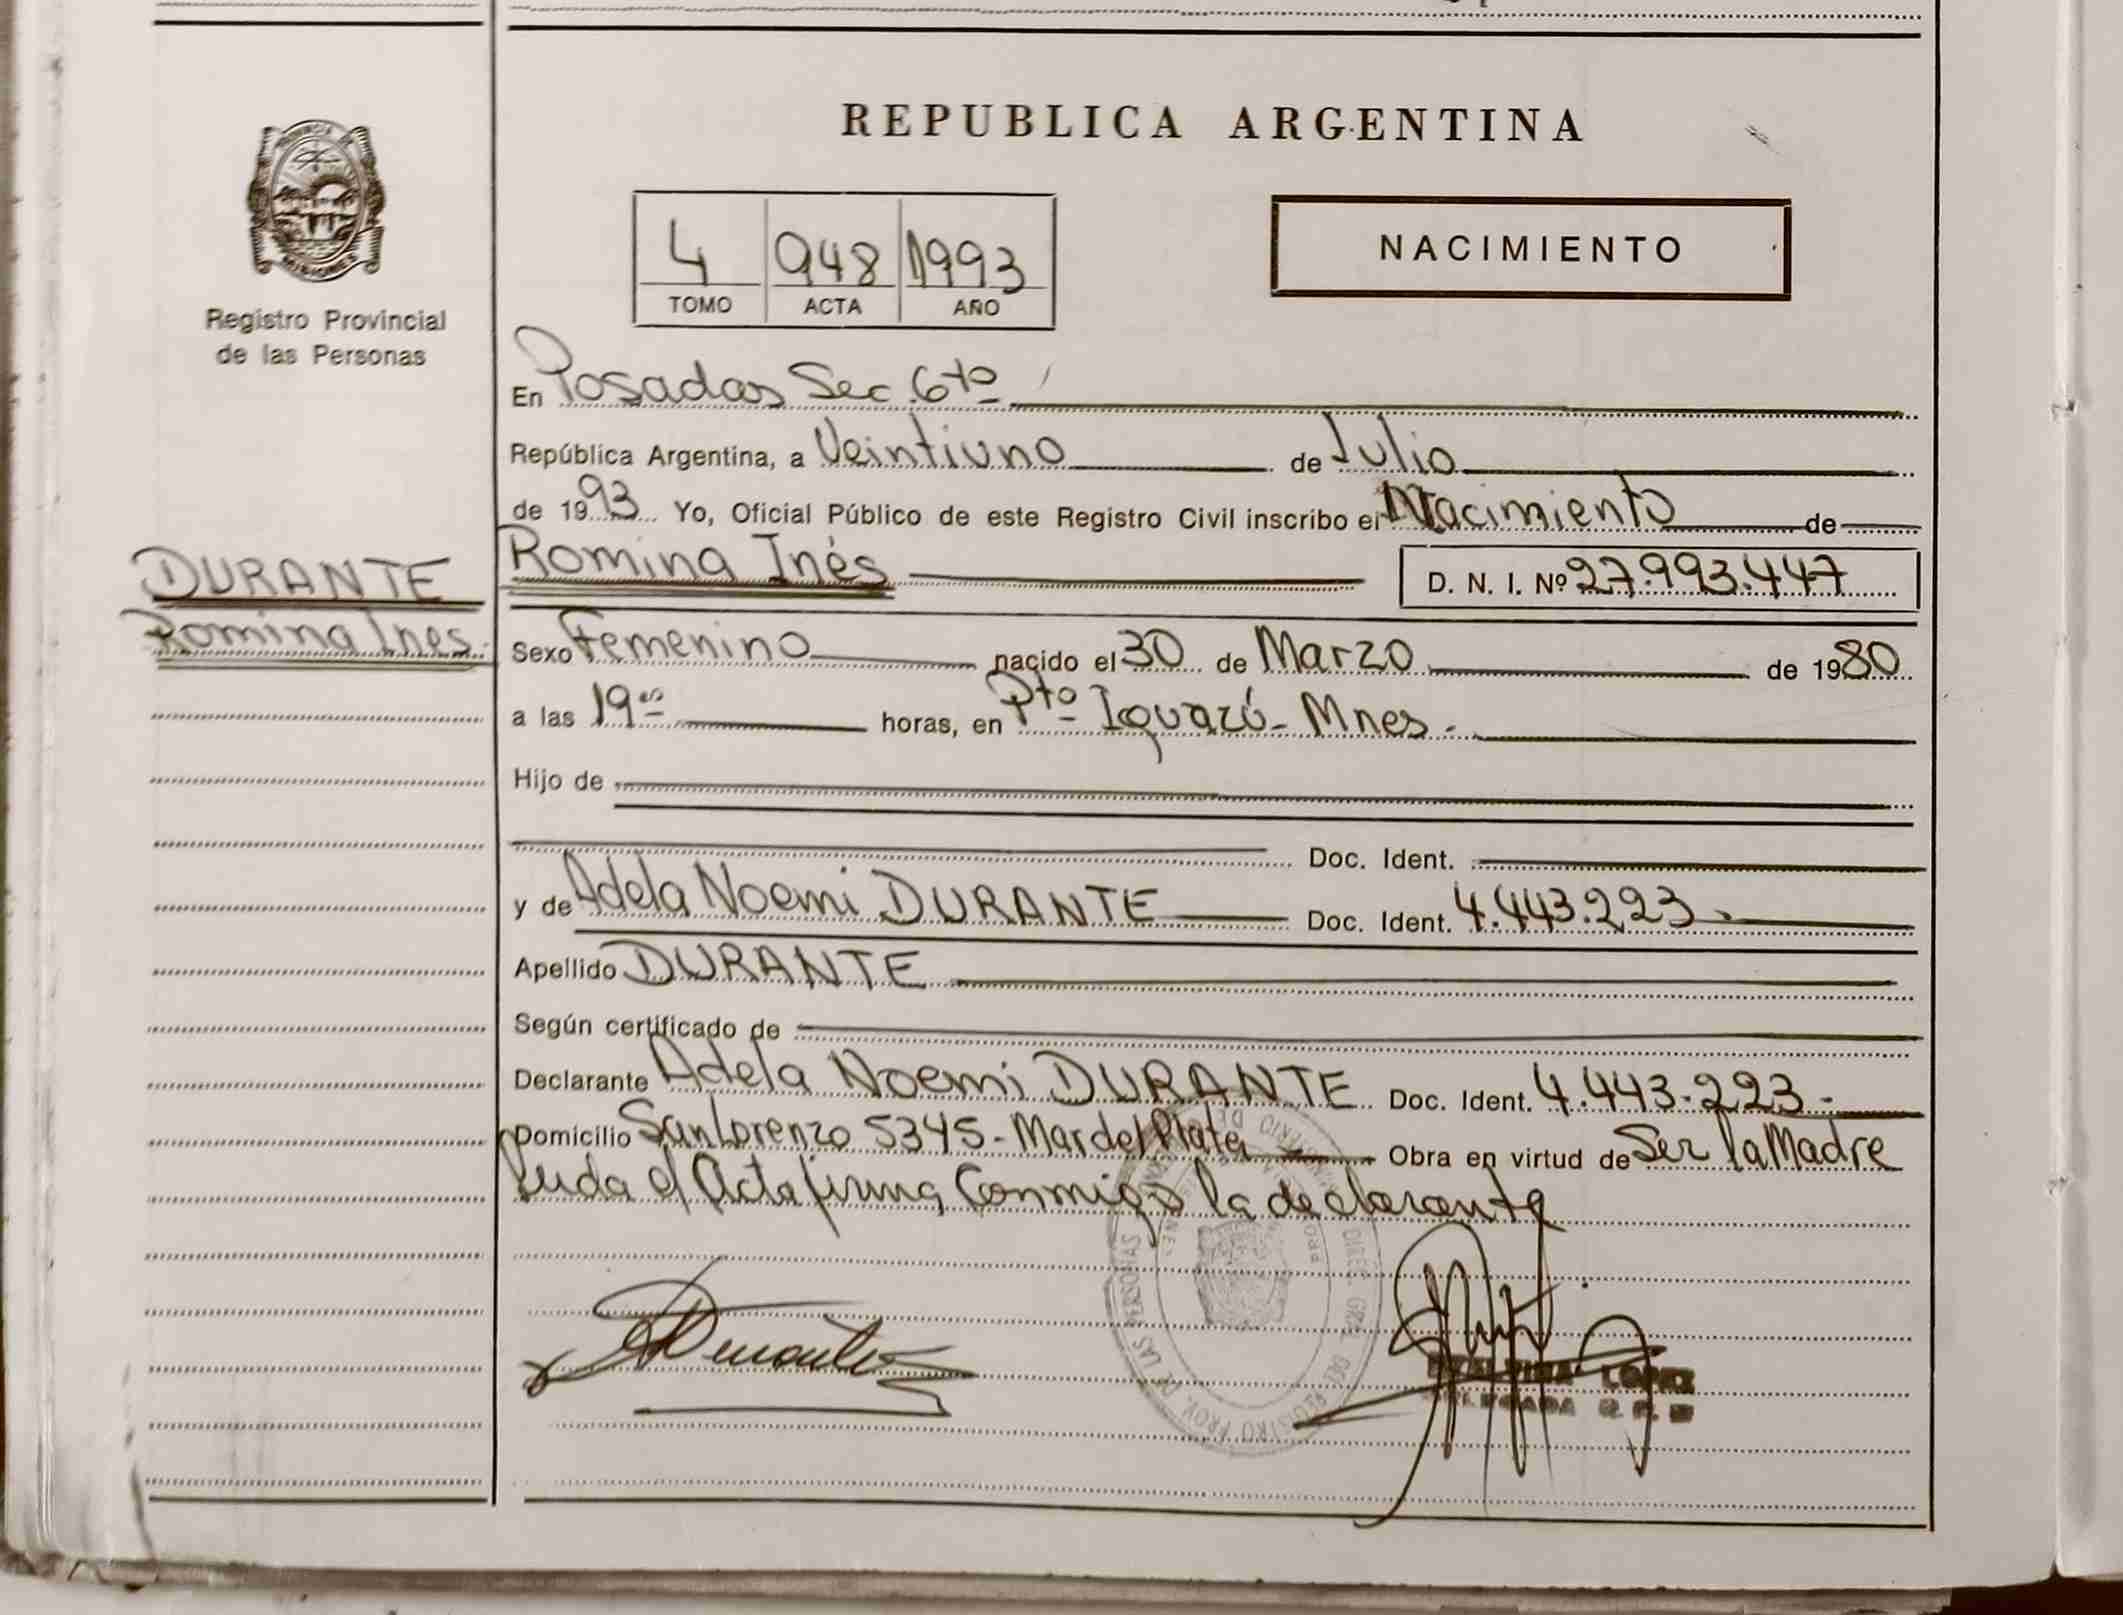 REPUBLICA ARGENTINA
PROVINCIA
MISIONES
Registro Provincial
de las Personas
4 948 1993
TOMO ACTA AÑO
NACIMIENTO
En Posadas Sec. 6ta
República Argentina, a Veintiuno de Julio
de 1993 Yo, Oficial Público de este Registro Civil inscribo el Nacimiento de
DURANTE
Romina Ines
Romina Inés D. N. I. Nº 27.993.447
Sexo Femenino nacido el 30 de Marzo de 1980
a las 19 horas, en Pto Iguazú - Mnes.
Hijo de
Doc. Ident.
y de Adela Noemi DURANTE Doc. Ident. 4.443.223.
Apellido DURANTE
Según certificado de
Declarante Adela Noemi DURANTE Doc. Ident. 4.443.223.-
Domicilio San Lorenzo 5345 - Mar del Plata Obra en virtud de Ser la Madre
Leida el Acta firma Conmigo la declarante
Durante
LOPEZ